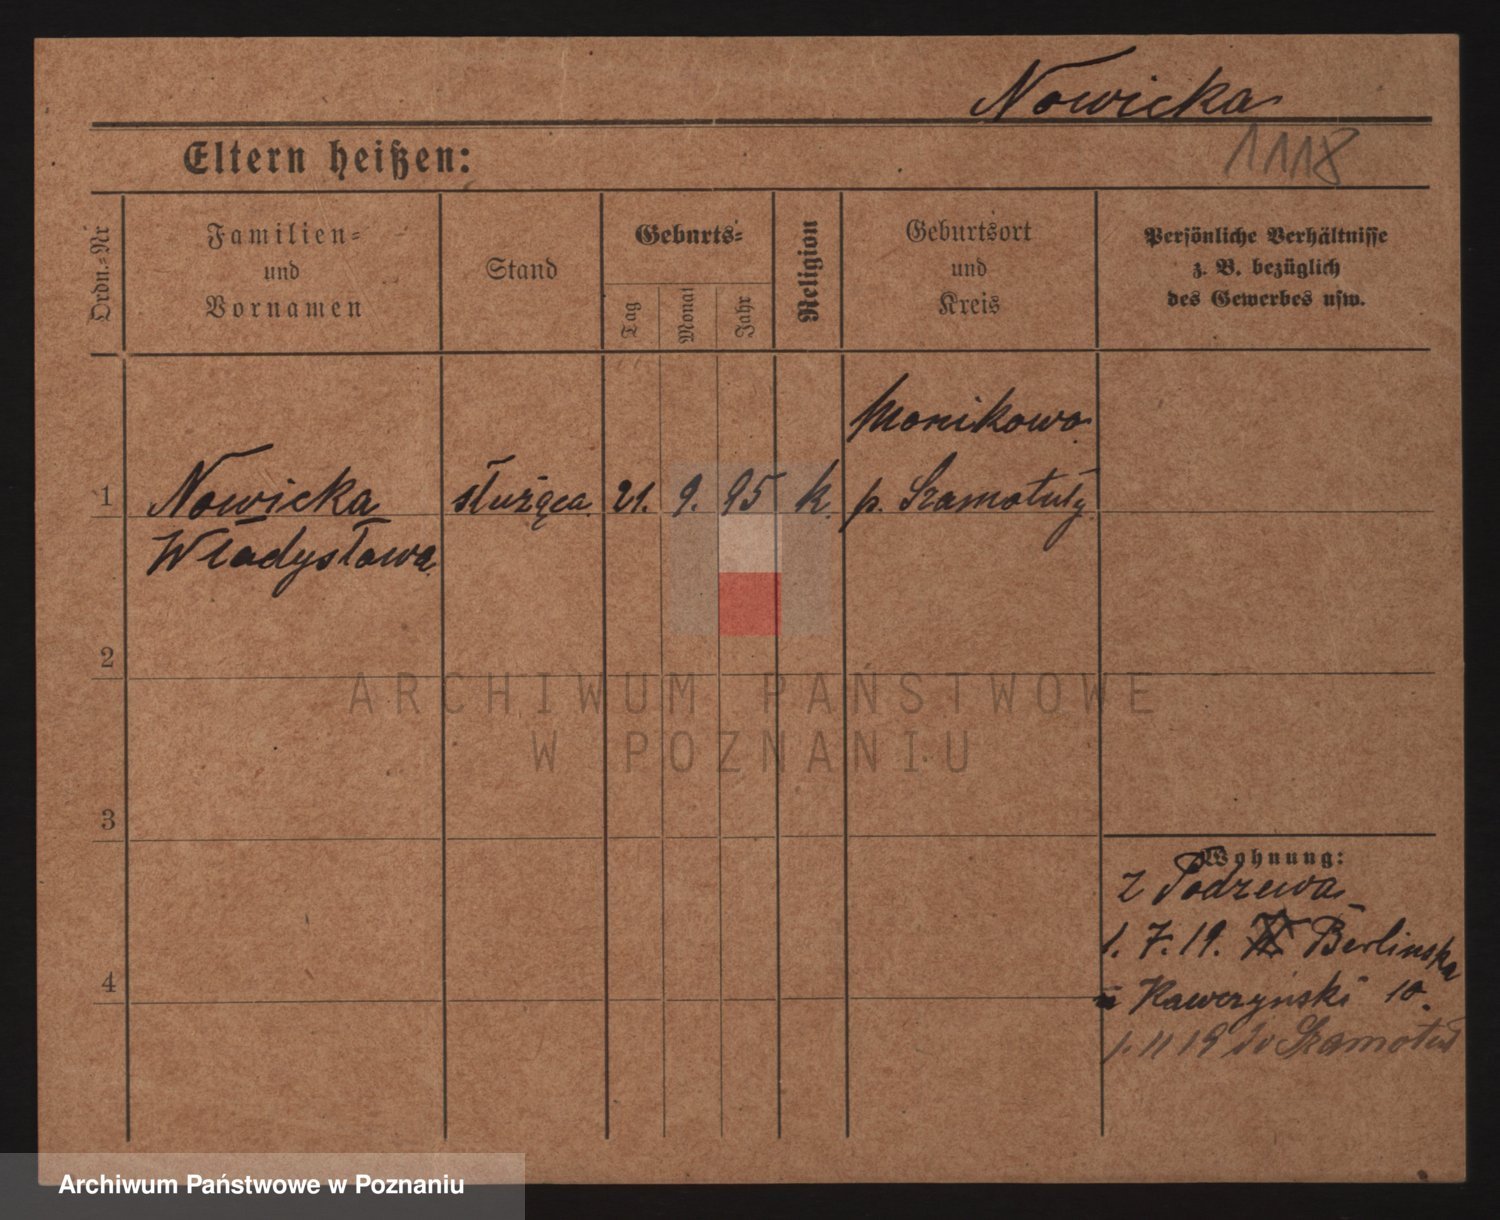 Nowicka
Eltern heißen:
1118
Ordn.-Nr
Familien-
und
Vornamen
Stand
Geburts-
Tag
Monat
Jahr
Religion
Geburtsort
und
Kreis
Persönliche Verhältnisse
z. B. bezüglich
des Gewerbes usw.
Monikowo
1 Nowicka służąca 21. 9. 95 k. p. Szamotuły
Władysława
2
ARCHIWUM PAŃSTWOWE
W POZNANIU
3
Wohnung:
z Podrzewa
1. 7. 19. Berlinska
u Kawczyński 10.
1. 11 19 do Szamotuł
4
Archiwum Państwowe w Poznaniu